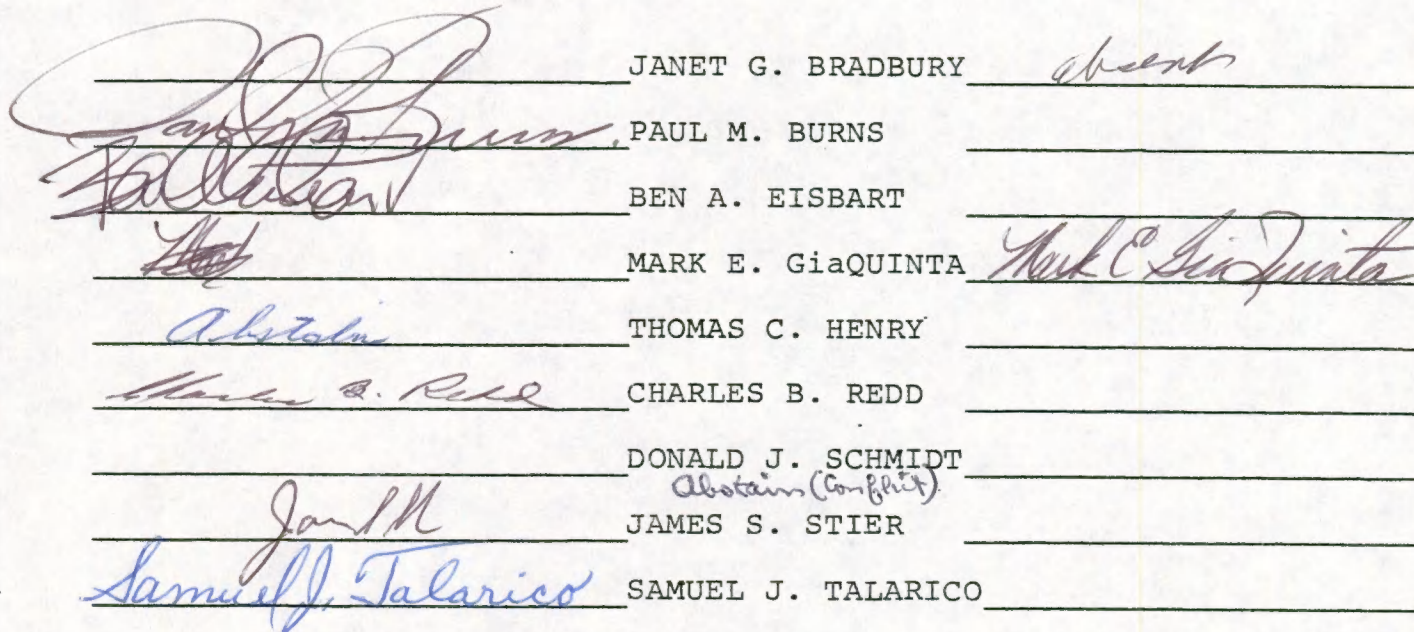 JANET G. BRADBURY absent
PAUL M. BURNS
BEN A. EISBART
MARK E. GiaQUINTA Mark E GiaQuinta
Abstain THOMAS C. HENRY
Charles B. Redd CHARLES B. REDD
DONALD J. SCHMIDT
Abstain (Conflict)
JAMES S. STIER
Samuel J. Talarico SAMUEL J. TALARICO